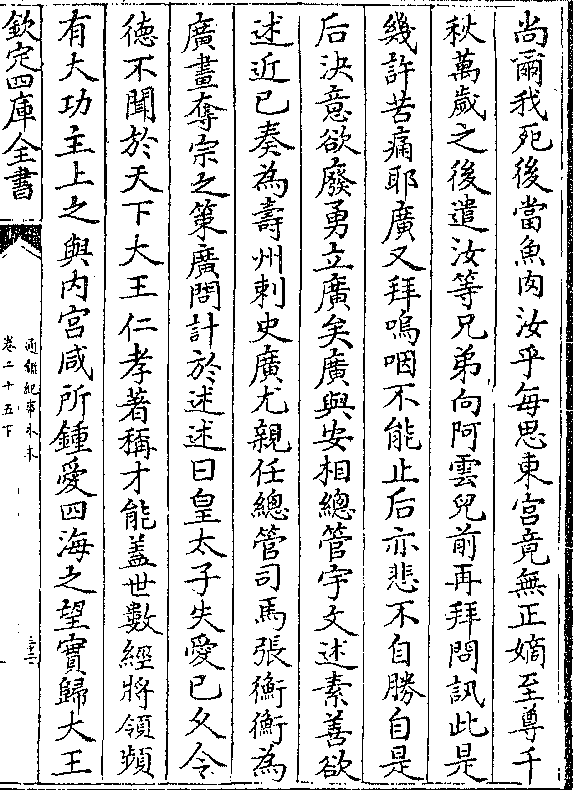 尚爾我死後當魚肉汝乎每思東宫竟無正嫡至尊千
秋萬歲之後遣汝等兄弟向阿雲兒前再拜問訊此是
幾許苦痛耶廣又拜嗚咽不能止后亦悲不自勝自是
后決意欲廢勇立廣矣廣與安相總管宇文述素善欲
述近已奏為壽州刺史廣尤親任總管司馬張衡衡為
廣畫奪宗之策廣問計於述述曰皇太子失愛已久令
德不聞於天下大王仁孝著稱才能盖世數經將領頻
有大功主上之與内宫咸所鍾愛四海之望實歸大王
欽定四庫全書
通鑑紀事本末
卷二十五下